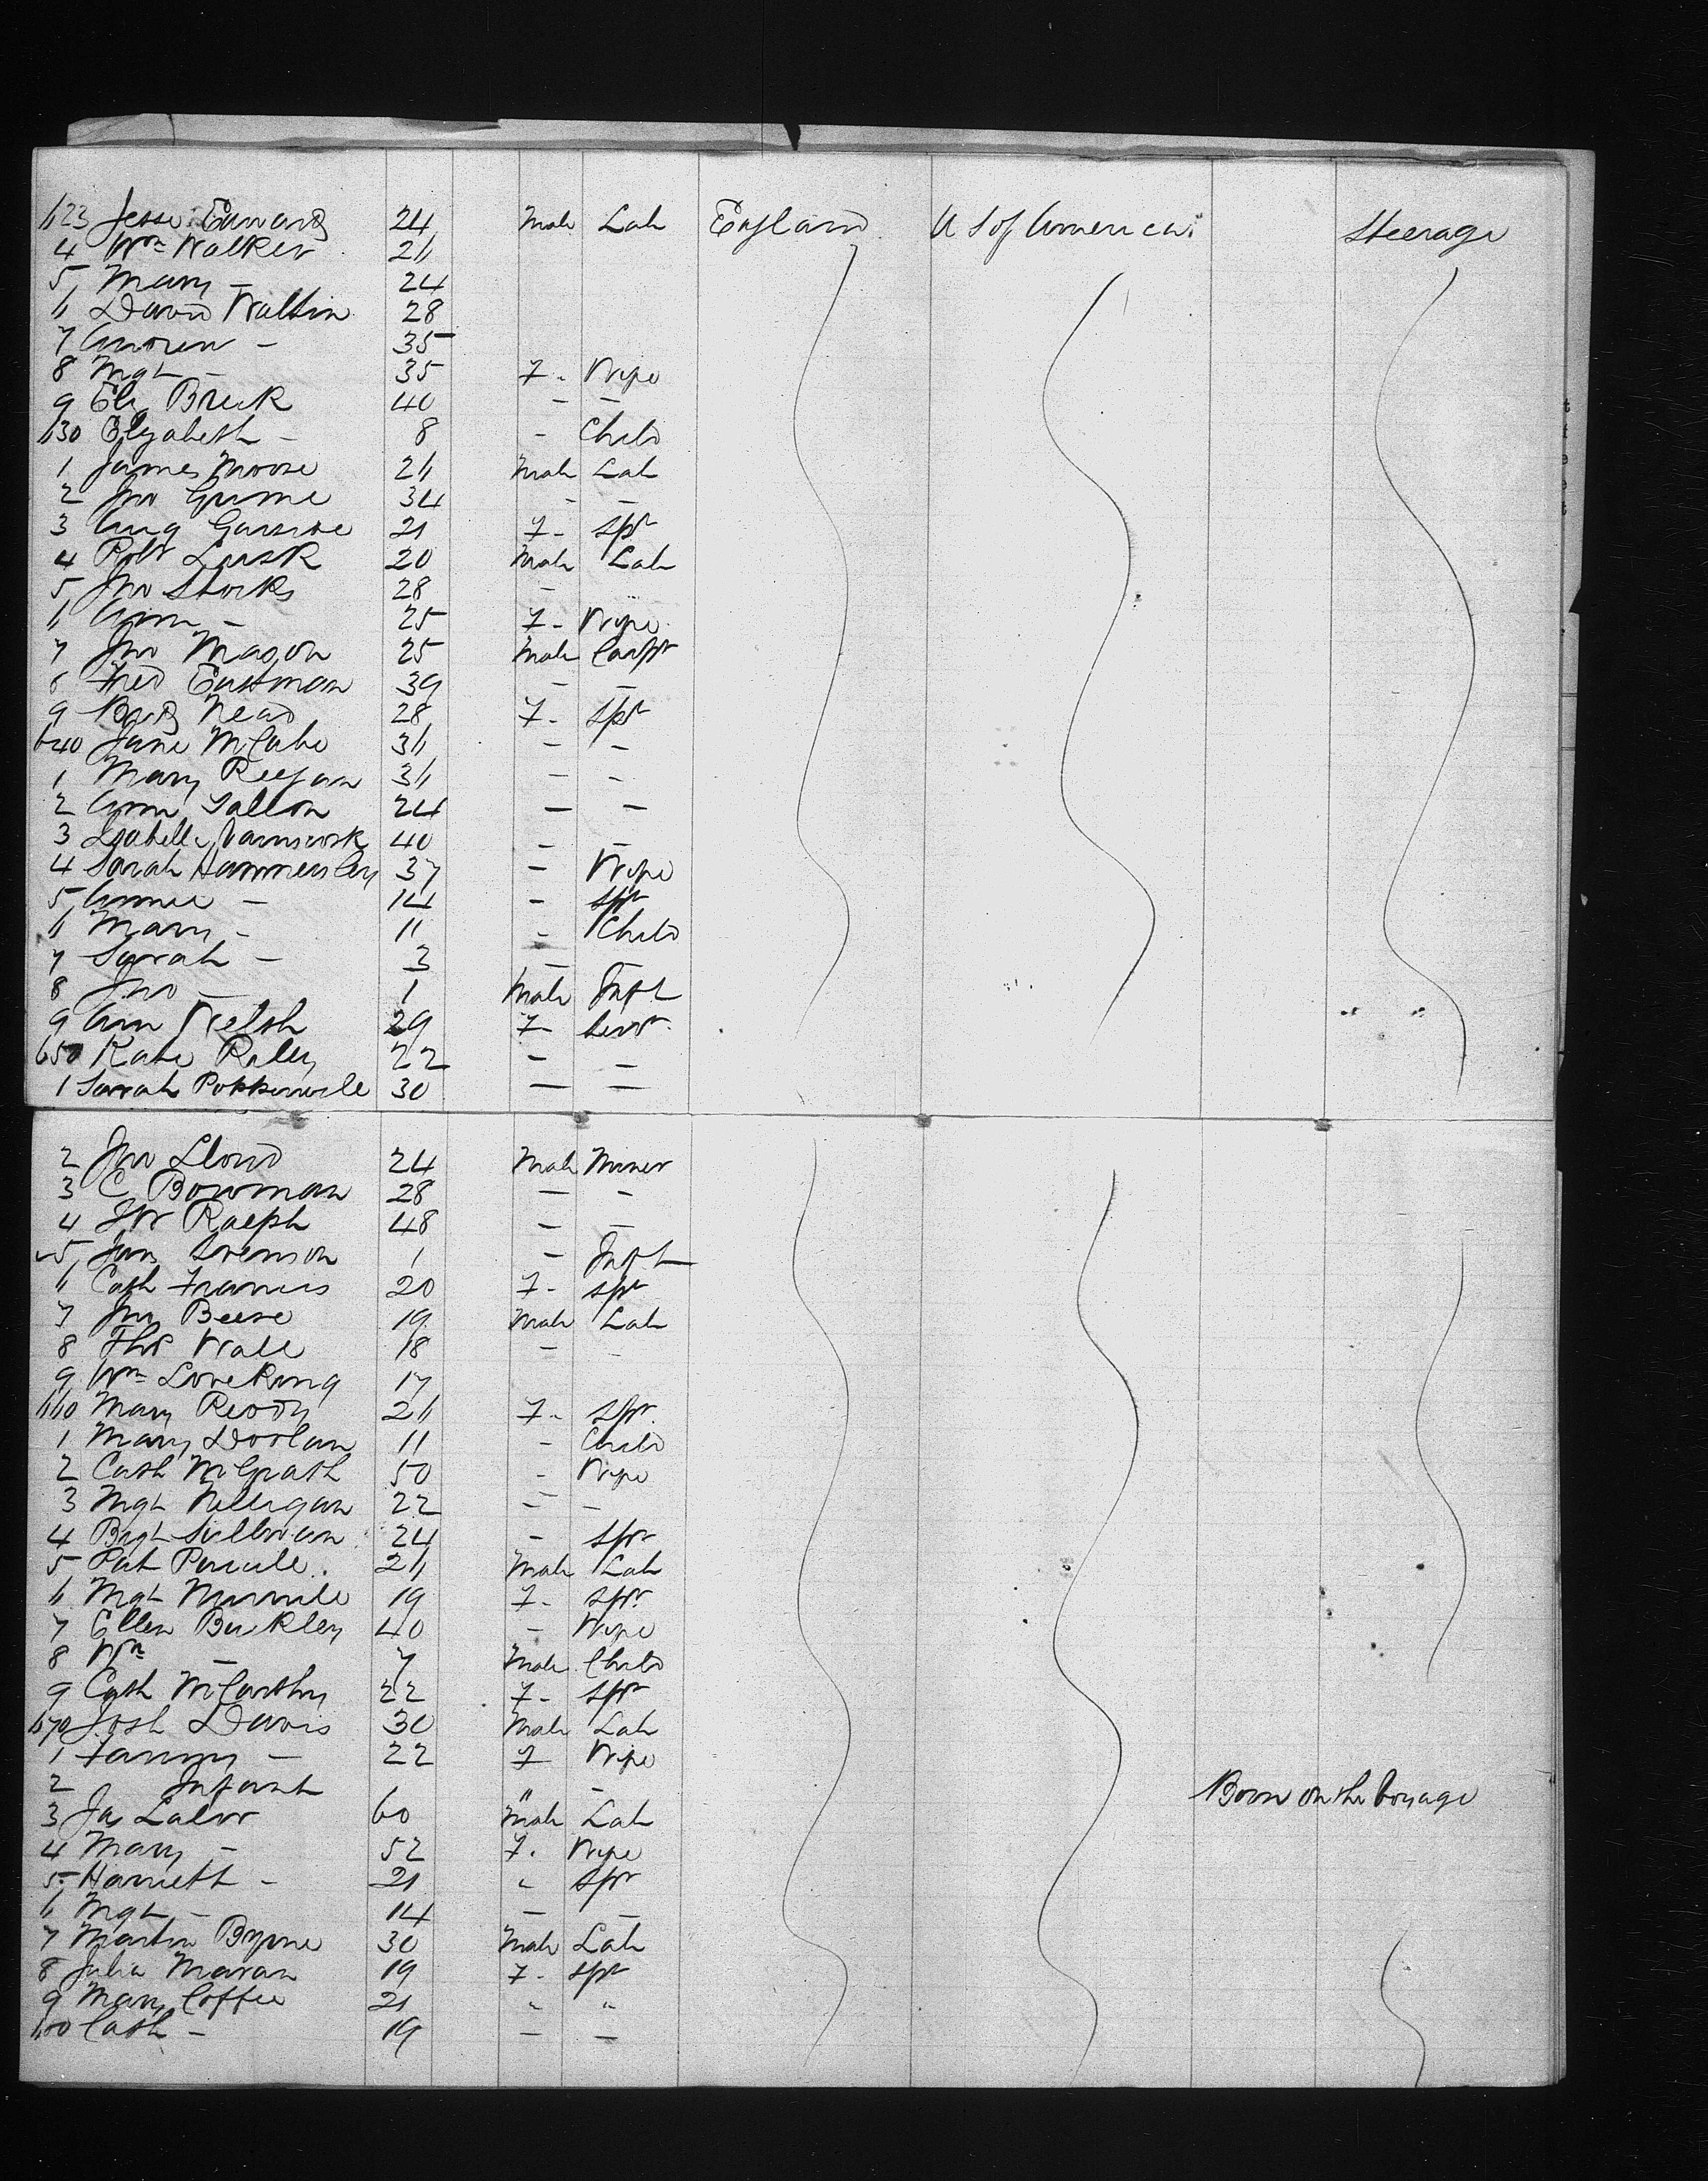 623 Jesse Edwards 24 Male Lab England U S of America Steerage
4 Wm Walker 26
5 Mary - 24
6 David Waltin 28
7 Andrew - 35
8 Mgt - 35 F - Wife
9 Eliz Break 40 - -
630 Elizabeth - 8 - Child
1 James Moore 26 Male Lab
2 Jno Grime 34 - -
3 Aug 21 F - Spr
4 Robt Lusk 20 Male Lab
5 Jno Storks 28 -
6 Ann - 25 F - Wife
7 Jno Mason 25 Male Carpr
8 Fred Eastman 39 - -
9 Read 28 F - Spr
640 Jane McCabe 36 - -
1 Mary Regan 36 - -
2 Ann Fallon 24 - -
3 Isabella 40 - -
4 Sarah Hammersley 37 - Wife
5 Annie - 14 - Spr
6 Mary - 11 - Child
7 Sarah - 3 - -
8 Jno - 1 Male Inft
9 Ann Welsh 29 F - Servt
650 Kate Raley 22 - -
1 Sarah Popperwell 30 - -
2 Jno Lloyd 24 Male Miner
3 C Bowman 28 - -
4 JW Ralph 48 - -
5 Jas Svenson 1 - Inft
6 Cath Francis 20 F - Spr
7 Jno Beese 19 Male Lab
8 Thos Wall 18 - -
9 Wm Lovering 17
660 Mary Reddy 26 F - Spr
1 Mary Doolan 11 - Child
2 Cath McGrath 50 - Wife
3 Mgt Nelligan 22 - -
4 Brgt Sullivan 24 - Spr
5 Pat 26 Male Lab
6 Mgt 19 F - Spr
7 Ellen Buckley 40 - Wife
8 Wm - 7 Male Child
9 Cath McCarthy 22 F - Spr
670 Josh Davis 30 Male Lab
1 Fanny - 22 F Wife
2 Infant " - Born on the Voyage
3 Jas Lalor 60 Male Lab
4 Mary - 52 F - Wife
5 Harriett - 21 " Spr
6 Mgt - 14 - -
7 Martin Byrne 30 Male Lab
8 Julia Maran 19 F - Spr
9 Mary Coffee 21 " "
680 Cath - 19 - -